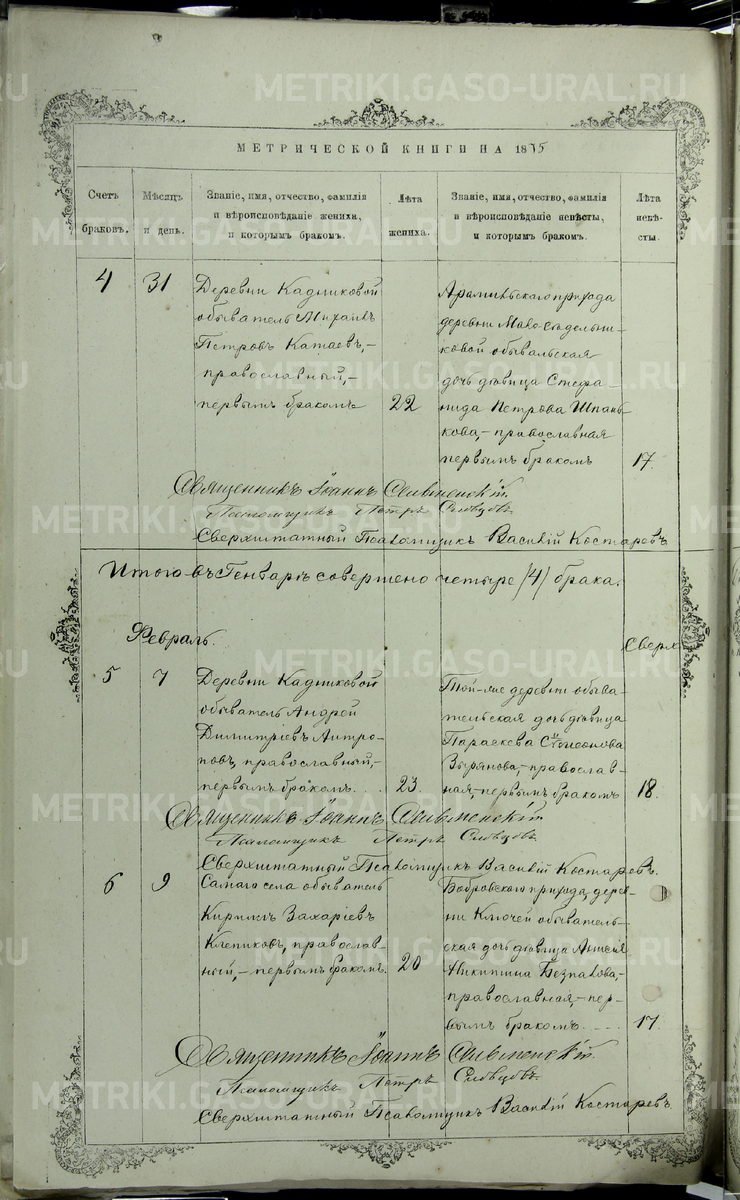 METRIKI.GASO-URAL.RU
МЕТРИЧЕСКОЙ КНИГИ НА 1875
Счетъ браковъ.
Мѣсяцъ и день.
Званіе, имя, отчество, фамилія и вѣроисповѣданіе жениха, и которымъ бракомъ.
Лѣта жениха.
Званіе, имя, отчество, фамилія и вѣроисповѣданіе невѣсты, и которымъ бракомъ.
Лѣта невѣсты.
4
31
Деревни Кадниковой
обыватель Михаилъ
Петровъ Катаевъ,-
православный,-
первымъ бракомъ
22
Арамильскаго прихода
деревни Мало-Седельни-
ковой обывальская
дочь дѣвица Стефа-
нида Петрова Шпань-
кова,- православная
первымъ бракомъ
17.
Священникъ Іоаннъ
Псаломщикъ Петръ Словцовъ
Сверхштатный Псаломщикъ Василій Костаревъ
Итого въ Генварѣ совершено четыре /4/ брака.
Февраль.
Сверх
5
7
Деревни Кадниковой
обыватель Андрей
Димитріевъ Антро-
повъ, православный,-
первымъ бракомъ.
23.
Той-же деревни обыва-
тельская дочь дѣвица
Параскева
Зырянова,- православ-
ная,- первымъ бракомъ
18.
Священникъ Іоаннъ
Псаломщикъ Петръ Словцовъ
Сверхштатный Псаломщикъ Василій Костаревъ.
6
9
Самаго села обыватель
Кириллъ Захаріевъ
Клепиковъ, православ-
ный,- первымъ бракомъ.
20
Бобровскаго прихода, дерев-
ни Ключей обыватель-
ская дочь дѣвица
Никитина
православная,- пер-
вымъ бракомъ....
17.
Священникъ Іоаннъ
Псаломщикъ Петръ Словцовъ
Сверхштатный Псаломщикъ Василій Костаревъ